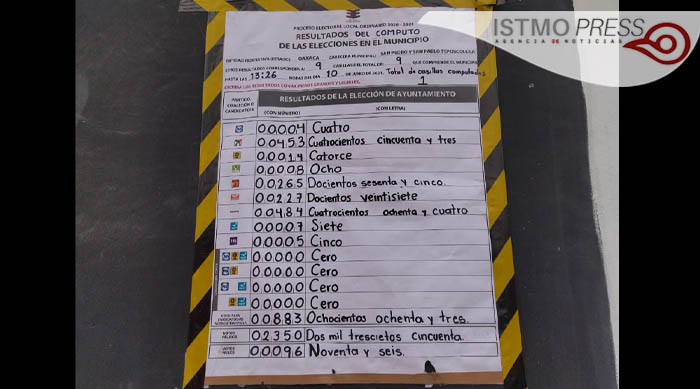 ISTMO PRESS
AGENCIA DE NOTICIAS
PROCESO ELECTORAL LOCAL ORDINARIO 2020 - 2021
RESULTADOS DEL COMPUTO
DE LAS ELECCIONES EN EL MUNICIPIO
OAXACA CABECERA MUNICIPAL: SAN PEDRO Y SAN PABLO TEPOSCOLULA
9 9 QUE COMPRENDE EL MUNICIPIO
HASTA LAS 13:26 HORAS DEL DÍA 10 DE JUNIO DE 2021. Total de casillas computadas
1
RESULTADOS DE LA ELECCIÓN DE AYUNTAMIENTO
PARTIDO, COALICIÓN O CANDIDATURA
(CON NÚMERO) (CON LETRA)
00004 Cuatro
00453 Cuatrocientos cincuenta y tres
00014 Catorce
00008 Ocho
00265 Docientos sesenta y cinco.
00227 Docientos veintisiete
00484 Cuatrocientos ochenta y cuatro
00007 Siete
00005 Cinco
00000 Cero
00000 Cero
00000 Cero
00000 Cero
00883 Ochocientos ochenta y tres.
02350 Dos mil trescietos cincuenta.
00096 Noventa y seis.